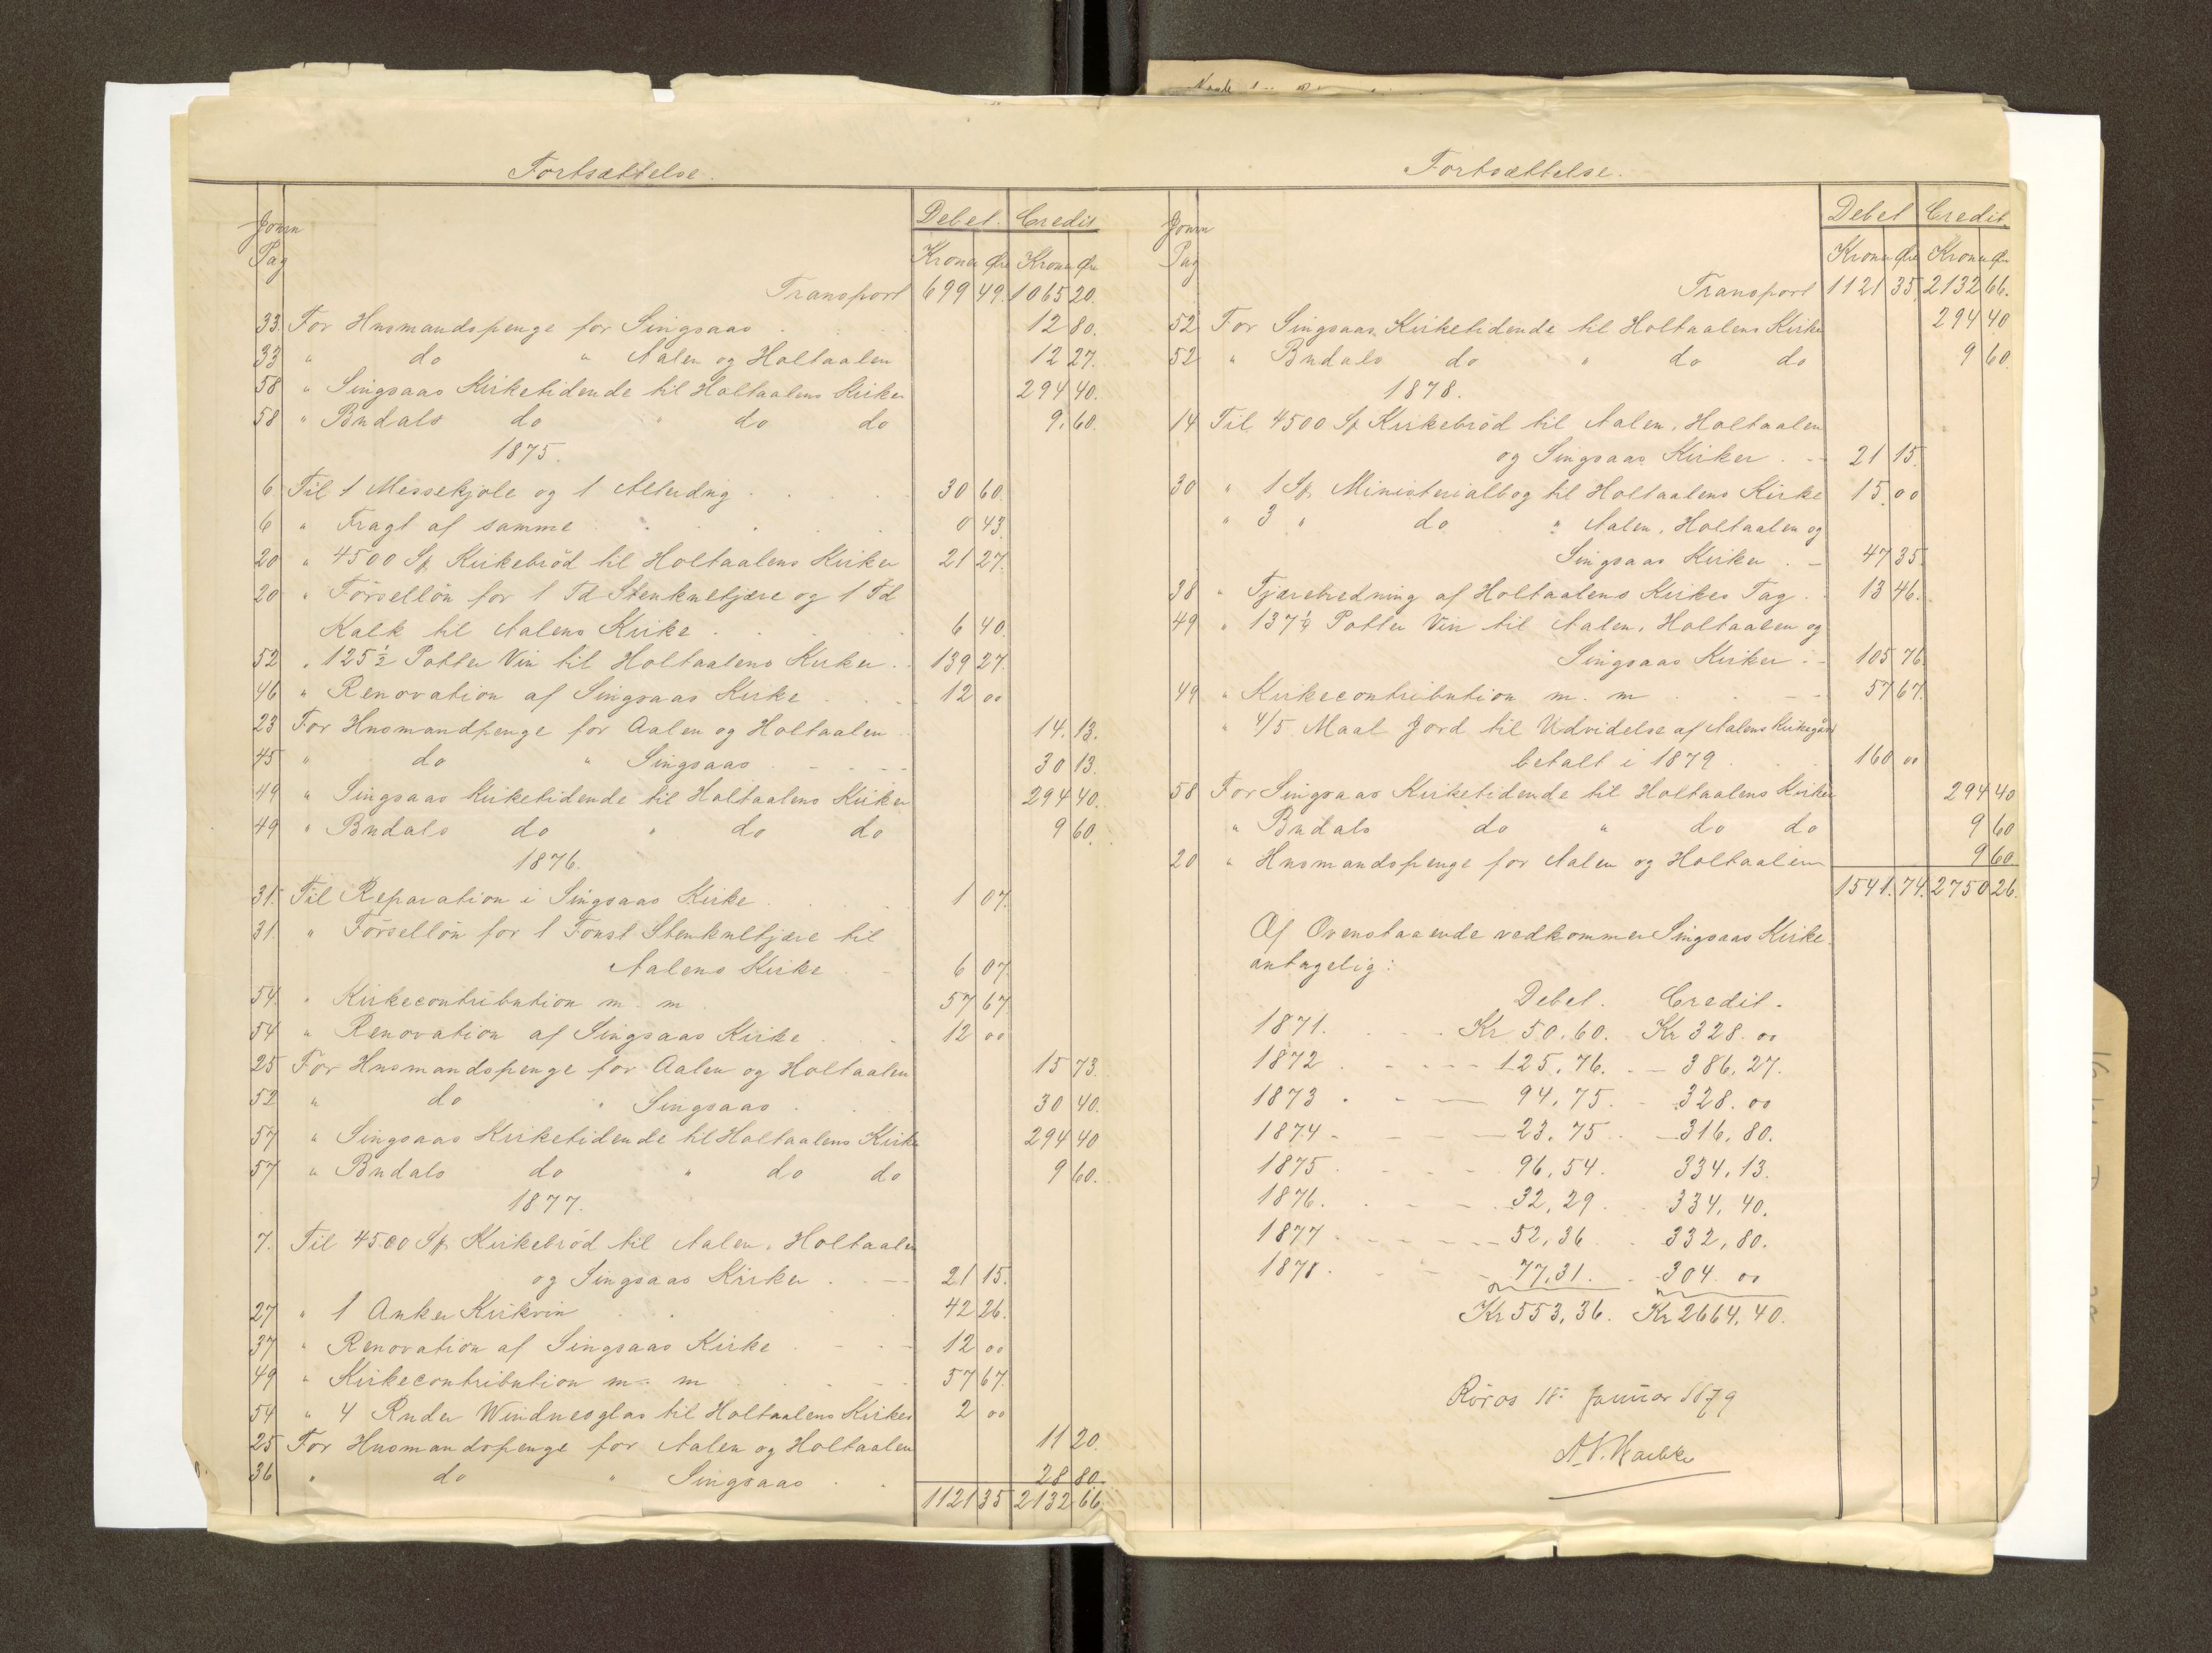 Fortsættelse.
Journ Pag
Debet. Credit
Kroner Øre Kroner Øre
Transport 699 49. 1065 20.
33 For Husmandspenge for Singsaas . 12 80.
33 " do " Aalen og Holtaalen 12 27.
58 " Singsaas Kirketidende til Holtaalens Kirker 294 40.
58 " Budals do " do do 9. 60.
1875.
6 Til 1 Messekjole og 1 Alterdug . . . 30 60.
6 " Fragt af samme . . . . 0 43.
20 " 4500 St Kirkebröd til Holtaalens Kirker 21 27.
20 " Förselløn for 1 Td Stenkultjære og 1 Td
Kalk til Aalens Kirke . . . . 6 40.
52 " 125 1/2 Potter Vin til Holtaalens Kirker . . 139 27.
46 " Renovation af Singsaas Kirke . . . 12 00
23 For Husmandpenge for Aalen og Holtaalen . . 14. 13.
45 " do " Singsaas . - - - - 30 13.
49 " Singsaas Kirketidende til Holtaalens Kirker 294 40.
49 " Budals do " do do 9 60.
1876.
31. Til Reparation i Singsaas Kirke . . . 1 07.
31. " Förselløn for 1 Tønst Stenkultjære til
Aalens Kirke . - 6 07.
54 " Kirkecontribution m. m . 57 67
54 " Renovation af Singsaas Kirke . . . 12 00
25 For Husmandspenge for Aalen og Holtaalen 15 73.
52 " do " Singsaas . . . 30 40.
57 " Singsaas Kirketidende til Holtaalens Kirke 294 40
57 " Budals do " do do 9 60.
1877.
7. Til 4500 St Kirkebröd til Aalen, Holtaalen
og Singsaas Kirker . - - 21 15.
27 " 1 Anker Kirkvin . . . 42 26.
37 " Renovation af Singsaas Kirke . - - - 12 00
49 " Kirkecontribution m. m . . - - 57 67.
54 " 4 Ruder Winduesglas til Holtaalens Kirker 2 00
25 For Husmandspenge for Aalen og Holtaalen 11 20.
36 " do " Singsaas . . 28 80.
1121 35 2132 66.
Fortsættelse.
Journ Pag
Debet Credit.
Kroner Øre Kroner Øre
Transport 1121 35. 2132 66.
52 For Singsaas Kirketidende til Holtaalens Kirke 294 40
52 " Budals do " do do 9 60.
1878.
14 Til 4500 St Kirkebröd til Aalen, Holtaalen
og Singsaas Kirker . - 21 15.
30 " 1 St Ministerialbog til Holtaalens Kirke 15. 00
" 3 " do " Aalen, Holtaalen og
Singsaas Kirker . - 47 35.
38 " Tjærebredning af Holtaalens Kirkes Tag . . 13 46.
49 " 137 1/4 Potter Vin til Aalen, Holtaalen og
Singsaas Kirker . - 105 76.
49 " Kirkecontribution m. m . . - - 57 67.
" 4/5 Maal Jord til Udvidelse af Aalens Kirkegård
betalt i 1879 . . 160 00
58 For Singsaas Kirketidende til Holtaalens Kirker 294 40
" Budals do " do do 9 60
20 " Husmandspenge for Aalen og Holtaalen 9 60
1541. 74. 2750 26.
Af Ovenstaaende vedkommer Singsaas Kirke.
antagelig:
Debet. Credit.
1871. . - - - Kr 50. 60. Kr 328. 00
1872 . - - - - 125. 76. - - 386. 27.
1873 . - - 94. 75. - 328. 00
1874 - - - - 23. 75 . - 316. 80.
1875 . - - - 96. 54. 334. 13.
1876. . - - - 32. 29 . . 334. 40.
1877 . - - - - - 52. 36 . 332. 80.
1878 . - - - 77. 31. . 304. 00
Kr 553. 36. Kr 2664. 40.
Röros 18. Januar 1879